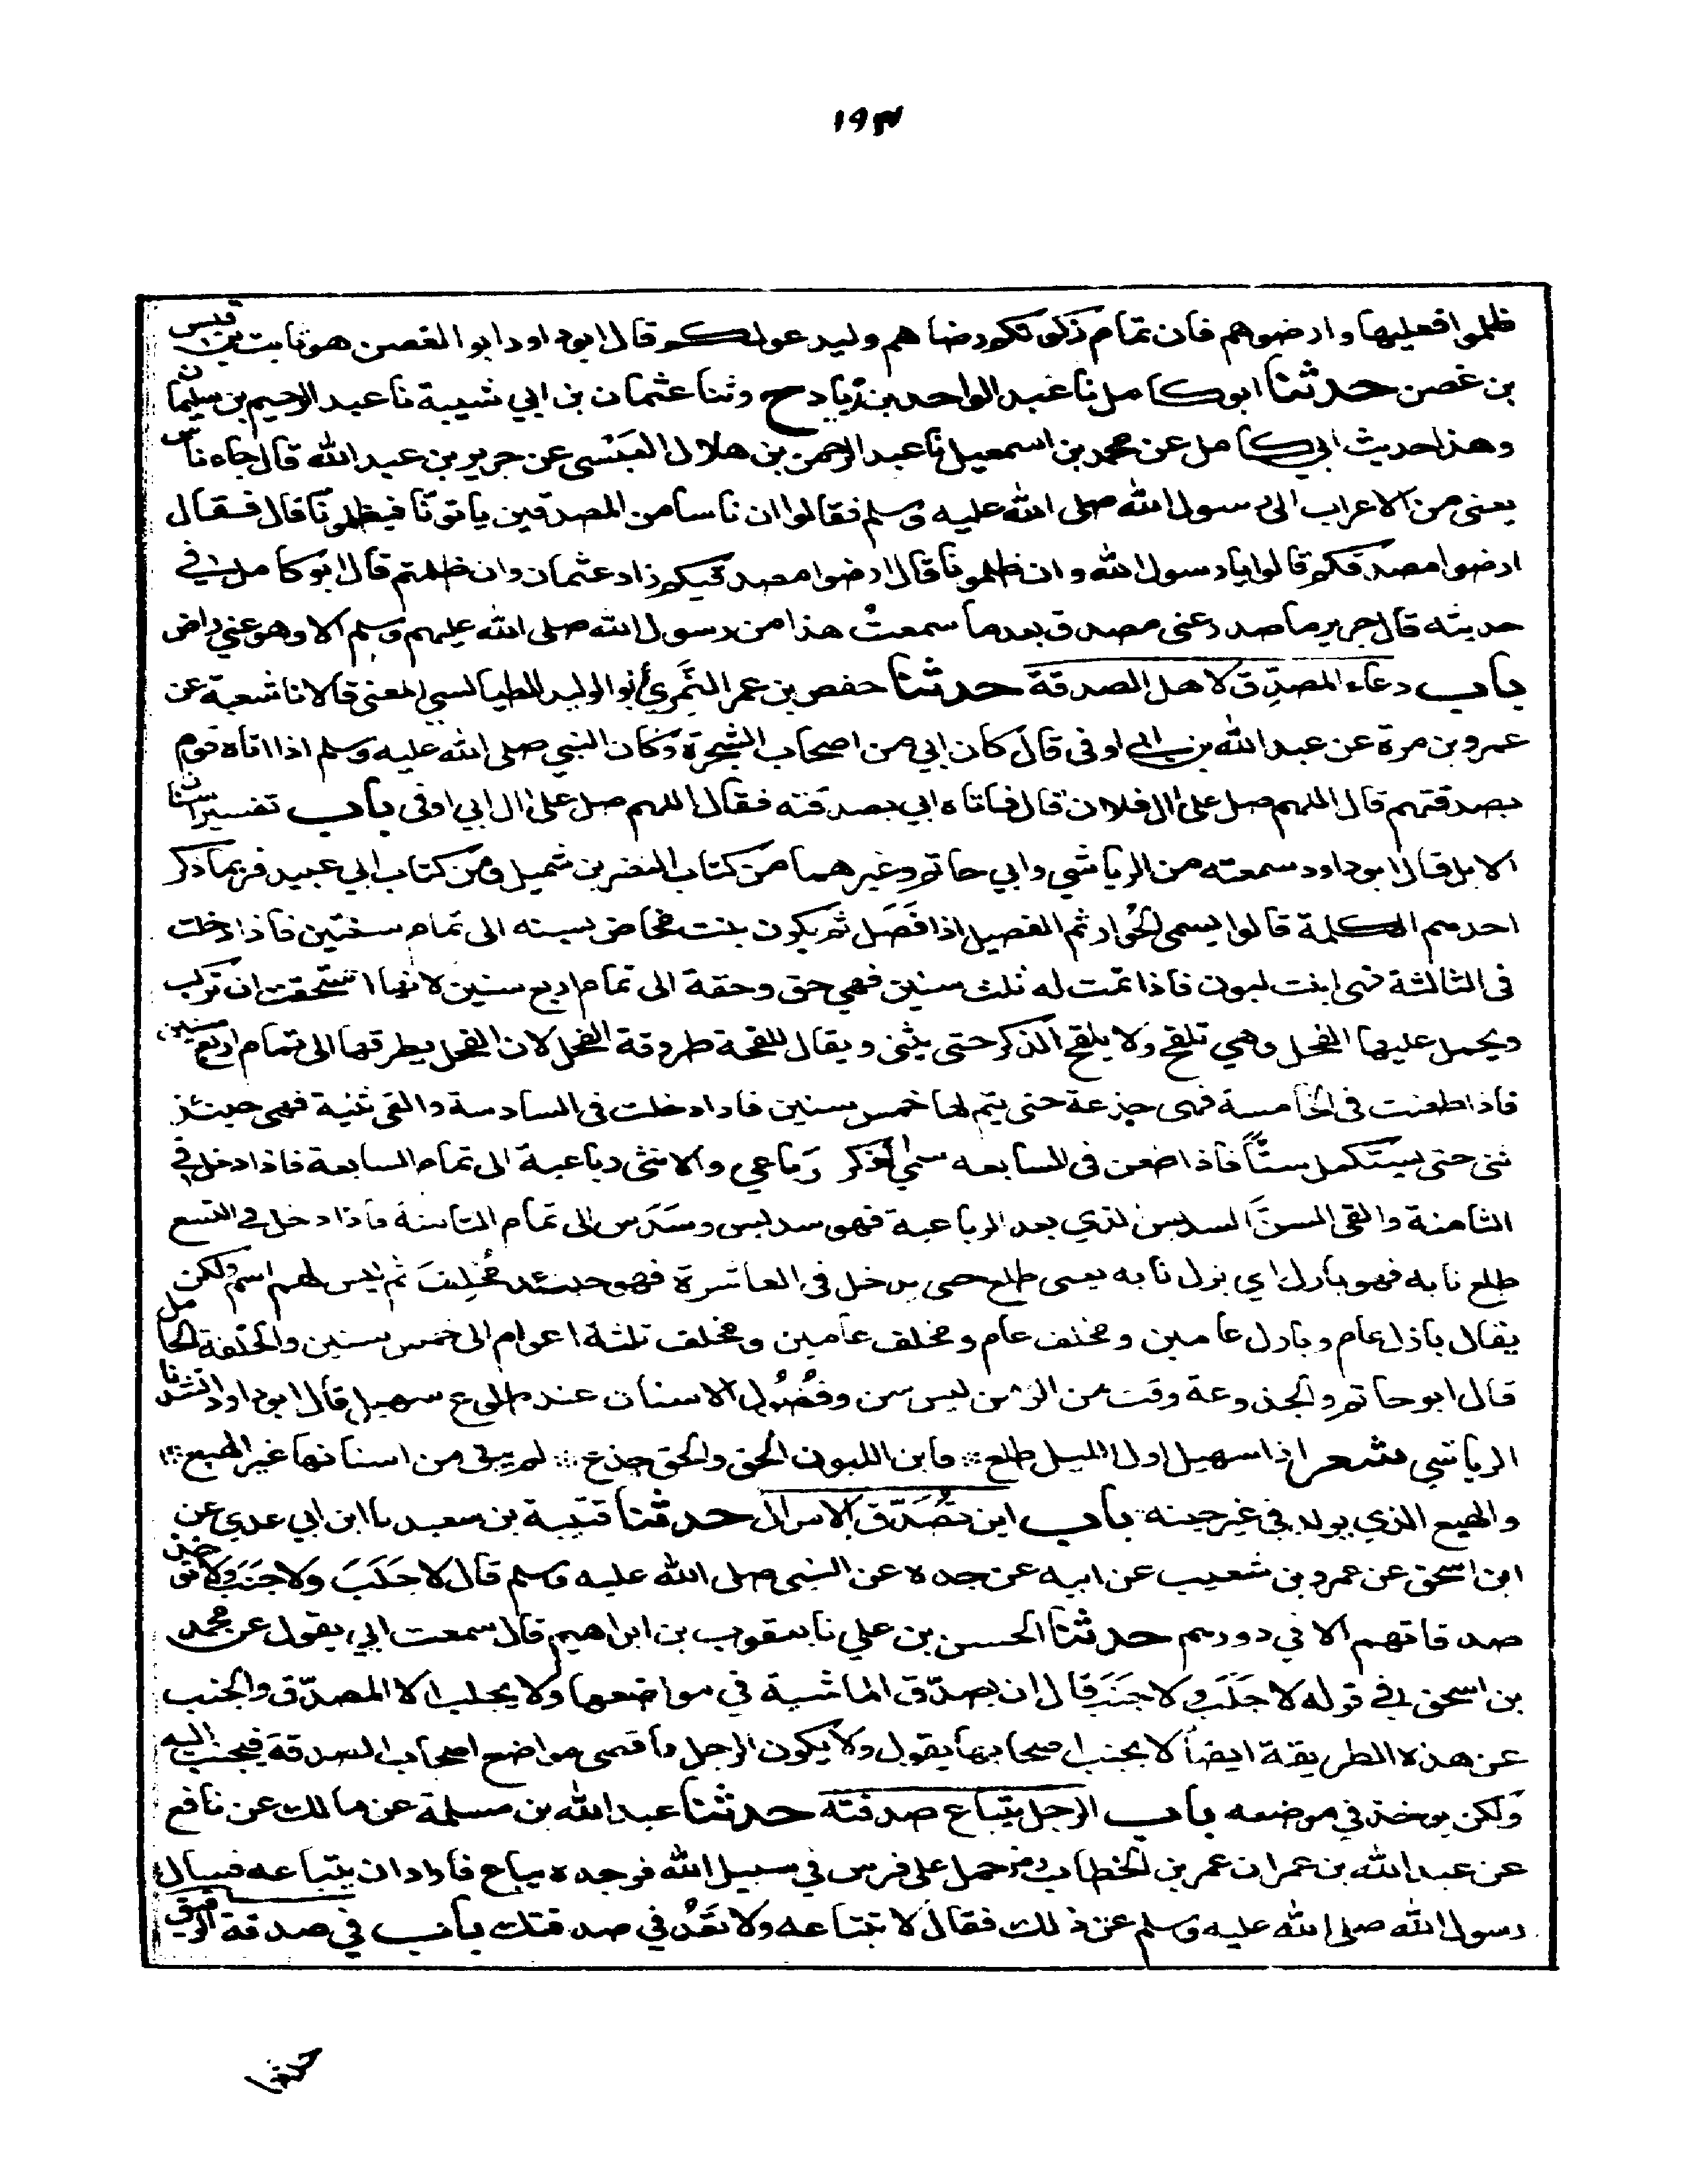 ١٩٣
ظلموا فعليها وارضوهم فان تمام زكوتكم رضاهم وليدعوا لكم قال ابو داود ابو الغصن هو ثابت بن قيس
بن غصن حدثنا ابو كامل نا عبد الواحد بن زياد ح وثنا عثمان بن ابي شيبة نا عبد الرحيم بن سليمان
وهذا حديث ابي كامل عن محمد بن اسمعيل نا عبد الرحمن بن هلال العبسي عن جرير بن عبد الله قال جاء ناس
يعنى من الاعراب الى رسول الله صلى الله عليه وسلم فقالوا ان ناسا من المصدقين ياتونا فيظلمونا قال فقال
ارضوا مصدقيكم قالوا يا رسول الله وان ظلمونا قال ارضوا مصدقيكم زاد عثمان وان ظلمتم قال ابو كامل في
حديثه قال جرير ما صدر عنى مصدق بعد ما سمعت هذا من رسول الله صلى الله عليه وسلم الا وهو عني راض
باب دعاء المصدق لاهل الصدقة حدثنا حفص بن عمر النمري وابو الوليد الطيالسي المعنى قالا نا شعبة عن
عمرو بن مرة عن عبد الله بن ابي اوفى قال كان ابي من اصحاب الشجرة وكان النبي صلى الله عليه وسلم اذا اتاه قوم
بصدقتهم قال اللهم صل على ال فلان قال فاتاه ابي بصدقته فقال اللهم صل على ال ابي اوفى باب تفسير اسنان
الابل قال ابو داود سمعته من الرياشي وابي حاتم وغيرهما من كتاب النضر بن شميل ومن كتاب ابي عبيد فربما ذكر
احدهم الكلمة قالوا يسمى الحوار ثم الفصيل اذا فصل ثم يكون بنت مخاض لسنة الى تمام سنتين فاذا دخلت
في الثالثة فهى ابنت لبون فاذا تمت له ثلث سنين فهي حق وحقة الى تمام اربع سنين لانها استحقت ان تركب
ويحمل عليها الفحل وهي تلقح ولا يلقح الذكر حتى يثنى ويقال للحقة طروقة الفحل لان الفحل يطرقها الى تمام اربع سنين
فاذا طعنت في الخامسة فهى جذعة حتى يتم لها خمس سنين فاذا دخلت في السادسة والقى ثنية فهى حينئذ
ثنى حتى يستكمل ستاً فاذا ضعن في السابعه سمي الذكر رَباعي والانثى رباعية الى تمام السابعة فاذا دخل في
الثامنة والقى السن السديس الذي بعد الرباعية فهو سديس وسَدَس الى تمام الثامنة فاذا دخل في التسع
طلع نابه فهو بازل اي بزل نابه يعنى طلع حتى يدخل في العاشرة فهو حينئذ مُخلِف ثم ليس لهم اسم ولكن
يقال بازل عام وبازل عامين ومخلف عام ومخلف عامين ومخلف ثلثة اعوام الى خمس سنين والخلفة الحامل
قال ابو حاتم والجذوعة وقت من الزمن ليس سن وفُصُول الاسنان عند طلوع سهيل قال ابو داود انشدنا
الرياشي شعر اذا سهيل اول الليل طلع فابن اللبون الحق والحق جذع لم يبق من اسنانها غير الهبع
والهبع الذي يولد في غير حينه باب اين تُصَدَّق الاموال حدثنا قتيبة بن سعيد نا ابن ابي عدي عن
ابن اسحق عن عمرو بن شعيب عن ابيه عن جده عن النبي صلى الله عليه وسلم قال لا جَلَبَ ولا جَنَبَ ولا تؤخذ
صدقاتهم الا في دورهم حدثنا الحسن بن علي نا يعقوب بن ابراهيم قال سمعت ابي يقول عن محمد
بن اسحق في قوله لا جَلَبَ ولا جَنَبَ قال ان تصدّق الماشية في مواضعها ولا يجلب الا المصدّق والجنب
عن هذه الطريقة ايضاً لا يجنب اصحابها يقول ولا يكون الرجل باقصى مواضع اصحاب الصدقة فيجنب اليه
ولكن يوخذ في موضعه باب الرجل يبتاع صدقته حدثنا عبد الله بن مسلمة عن مالك عن نافع
عن عبد الله بن عمر ان عمر بن الخطاب رضي حمل على فرس في سبيل الله فوجده يباع فاراد ان يبتاعه فسال
رسول الله صلى الله عليه وسلم عن ذلك فقال لا تبتاعه ولا تعُدْ في صدقتك باب في صدقة الرقيق
حدثنا